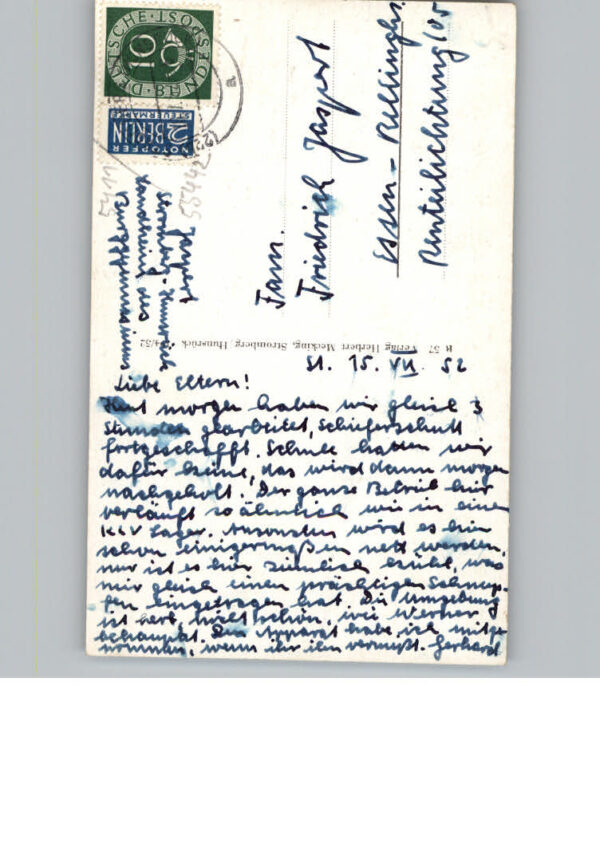 DEUTSCHE·BUNDESPOST
10
2 NOTOPFER
BERLIN
STEUERMARKE
5411
55442
Jaspert
Stromberg-Hunsrück
Fam.
Friedrich Jaspert
Essen-Rellinghs.
Renteilichtung 105
R 57 Verlag Herbert Mecking, Stromberg, Hunsrück 4/52
St. 15. VII. 52
Liebe Eltern!
Heut morgen haben wir gleich 3
Stunden gearbeitet, Schieferschutt
fortgeschafft. Schule hatten wir
dafür keine, das wird dann morgen
nachgeholt. Der ganze Betrieb hier
verläuft so ähnlich wie in einem
KLV Lager. Ansonsten wird es hier
schon einigermaßen nett werden,
nur ist es hier ziemlich kühl, was
mir gleich einen prächtigen Schnup-
fen eingetragen hat. Die Umgebung
ist herb, nicht schön, wie Werner
behauptet. Den Apparat habe ich mitge-
nommen, wenn ihr ihn vermißt. Gerhard